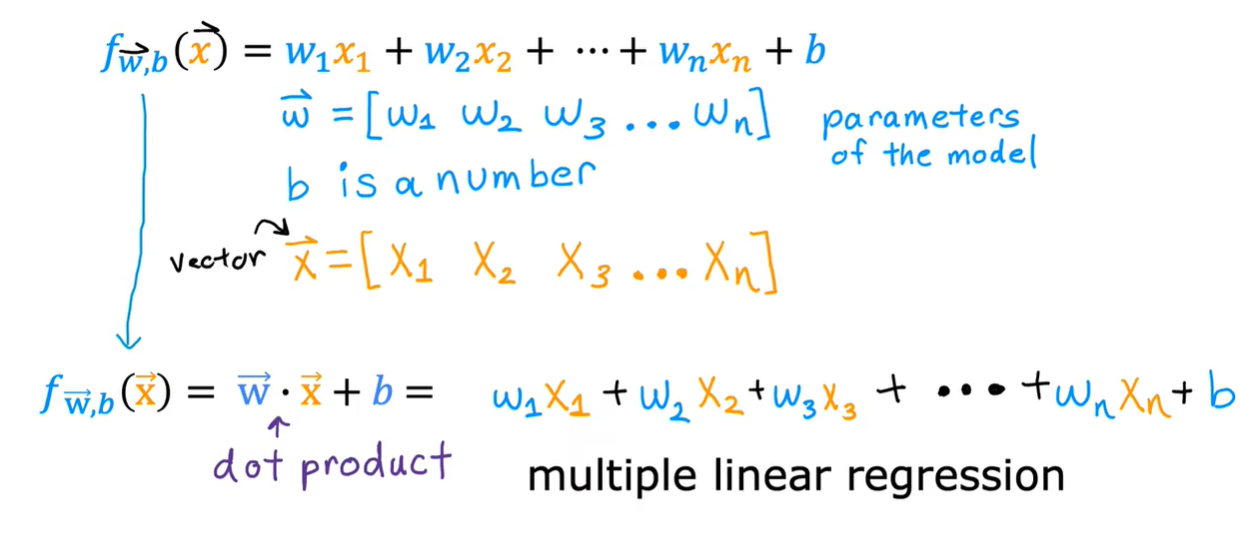 f_{\vec{w},b}(\vec{x}) = w₁x₁ + w₂x₂ + ⋯ + wₙxₙ + b
\vec{w} = [w₁ w₂ w₃ ... wₙ] parameters
of the model
b is a number
vector \vec{x} = [x₁ x₂ x₃ ... xₙ]
f_{\vec{w},b}(\vec{x}) = \vec{w} · \vec{x} + b = w₁x₁ + w₂x₂ + w₃x₃ + ⋯ + wₙxₙ + b
dot product
multiple linear regression